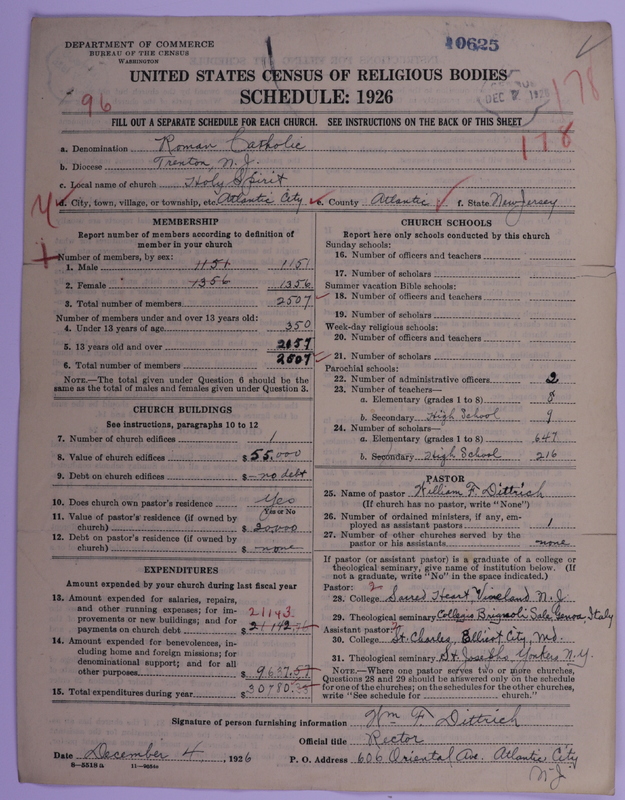 DEPARTMENT OF COMMERCE
BUREAU OF THE CENSUS
WASHINGTON
10625
UNITED STATES CENSUS OF RELIGIOUS BODIES
SCHEDULE: 1926
DEC 7 1926
96
178
178
FILL OUT A SEPARATE SCHEDULE FOR EACH CHURCH. SEE INSTRUCTIONS ON THE BACK OF THIS SHEET
a. Denomination Roman Catholic
b. Diocese Trenton N. J.
c. Local name of church Holy Spirit
d. City, town, village, or township, etc. Atlantic City e. County Atlantic f. State New Jersey
MEMBERSHIP
Report number of members according to definition of
member in your church
Number of members, by sex:
1. Male 1151 1151
2. Female 1356 1356
3. Total number of members 2507
Number of members under and over 13 years old:
4. Under 13 years of age 350
5. 13 years old and over 2157
6. Total number of members 2507
NOTE.—The total given under Question 6 should be the
same as the total of males and females given under Question 3.
CHURCH BUILDINGS
See instructions, paragraphs 10 to 12
7. Number of church edifices 1
8. Value of church edifices $ 55,000
9. Debt on church edifices $ no debt
10. Does church own pastor's residence Yes
Yes or No
11. Value of pastor's residence (if owned by
church) $ 20,000
12. Debt on pastor's residence (if owned by
church) $ none
EXPENDITURES
Amount expended by your church during last fiscal year
13. Amount expended for salaries, repairs,
and other running expenses; for im-
provements or new buildings; and for
payments on church debt 21143 $ 21142
14. Amount expended for benevolences, in-
cluding home and foreign missions; for
denominational support; and for all
other purposes $ 9637.57
15. Total expenditures during year $ 30780
CHURCH SCHOOLS
Report here only schools conducted by this church
Sunday schools:
16. Number of officers and teachers
17. Number of scholars
Summer vacation Bible schools:
18. Number of officers and teachers
19. Number of scholars
Week-day religious schools:
20. Number of officers and teachers
21. Number of scholars
Parochial schools:
22. Number of administrative officers 2
23. Number of teachers—
a. Elementary (grades 1 to 8) 8
b. Secondary High School 9
24. Number of scholars—
a. Elementary (grades 1 to 8) 647
b. Secondary High School 216
PASTOR
25. Name of pastor William F. Dittrich
(If church has no pastor, write "None")
26. Number of ordained ministers, if any, em-
ployed as assistant pastors 1
27. Number of other churches served by the
pastor or his assistants none
If pastor (or assistant pastor) is a graduate of a college or
theological seminary, give name of institution below. (If
not a graduate, write "No" in the space indicated.)
Pastor: 2
28. College Sacred Heart Vineland N. J.
29. Theological seminary Collegio Brignoli Sale Genoa, Italy
Assistant pastor:
30. College St. Charles, Ellicot City, Md.
31. Theological seminary St. Josephs Yonkers N.Y.
NOTE.—Where one pastor serves two or more churches,
Questions 28 and 29 should be answered only on the schedule
for one of the churches; on the schedules for the other churches,
write "See schedule for church."
Signature of person furnishing information Wm F. Dittrich
Official title Rector
Date December 4, 1926 P. O. Address 606 Oriental Ave. Atlantic City
N-J
8—5518a